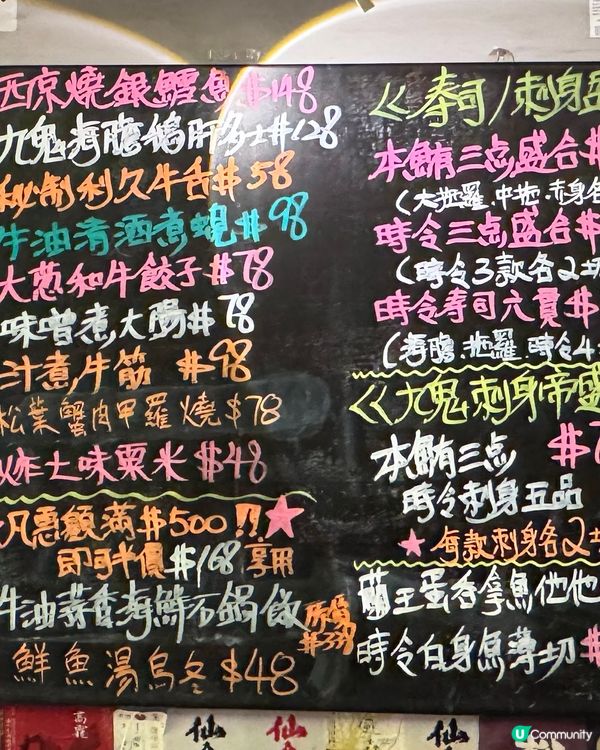 西京燒銀鱈魚 $148
九鬼海膽鵝肝多士 $128
秘制利久牛舌 $58
牛油清酒煮蜆 $98
大葱和牛餃子 $78
味噌煮大腸 $78
汁煮牛筋 $98
松葉蟹肉甲羅燒 $78
炸七味粟米 $48
凡惠顧滿 $500 !! ★
即可半價 $168 享用
牛油蒜香海鮮石鍋飯
原價
鮮魚湯烏冬 $48
<< 壽司/刺身
本鮪三点盛合 $
(大拖羅.中拖.赤身各
時令三点盛合 $
(時令3款各2切
時令寿司六貫 $
(海膽.拖羅.時令4
<< 九鬼刺身帝盛
本鮪三点 $
時令刺身五品
★ 每款刺身各2切
蘭王蛋吞拿魚他他
時令白身魚薄切 $
高龍
仙
仙
仙
U Community